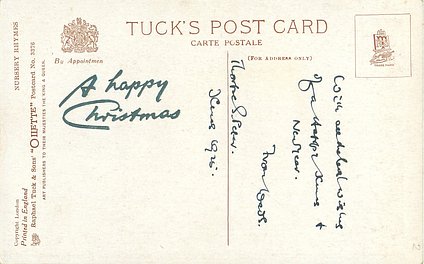 TUCK'S POST CARD
CARTE POSTALE
By Appointment
(FOR ADDRESS ONLY)
TRADE MARK
A happy
Christmas
NURSERY RHYMES
Raphael Tuck & Sons' "OILETTE" Postcard No. 3376
ART PUBLISHERS TO THEIR MAJESTIES THE KING & QUEEN.
Copyright London
Printed in England
Xmas
from
With
wishes
for a Happy Xmas &
New Year.